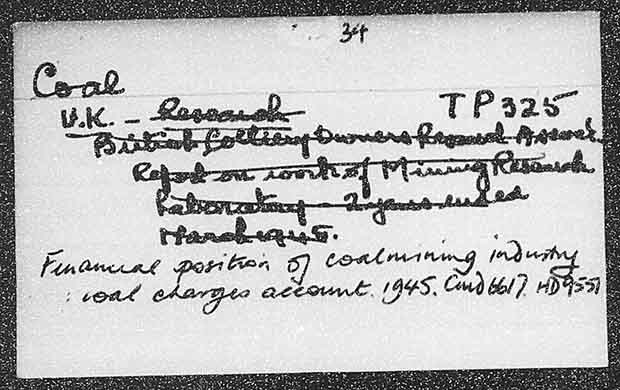 34
Coal
U.K. – Research TP325
British Colliery Owners Research Assoc.
Report on work of Mining Research
Laboratory – 2 years ended
March 1945.
Financial position of coalmining industry
: coal charges account. 1945. Cmd 6617. HD9551